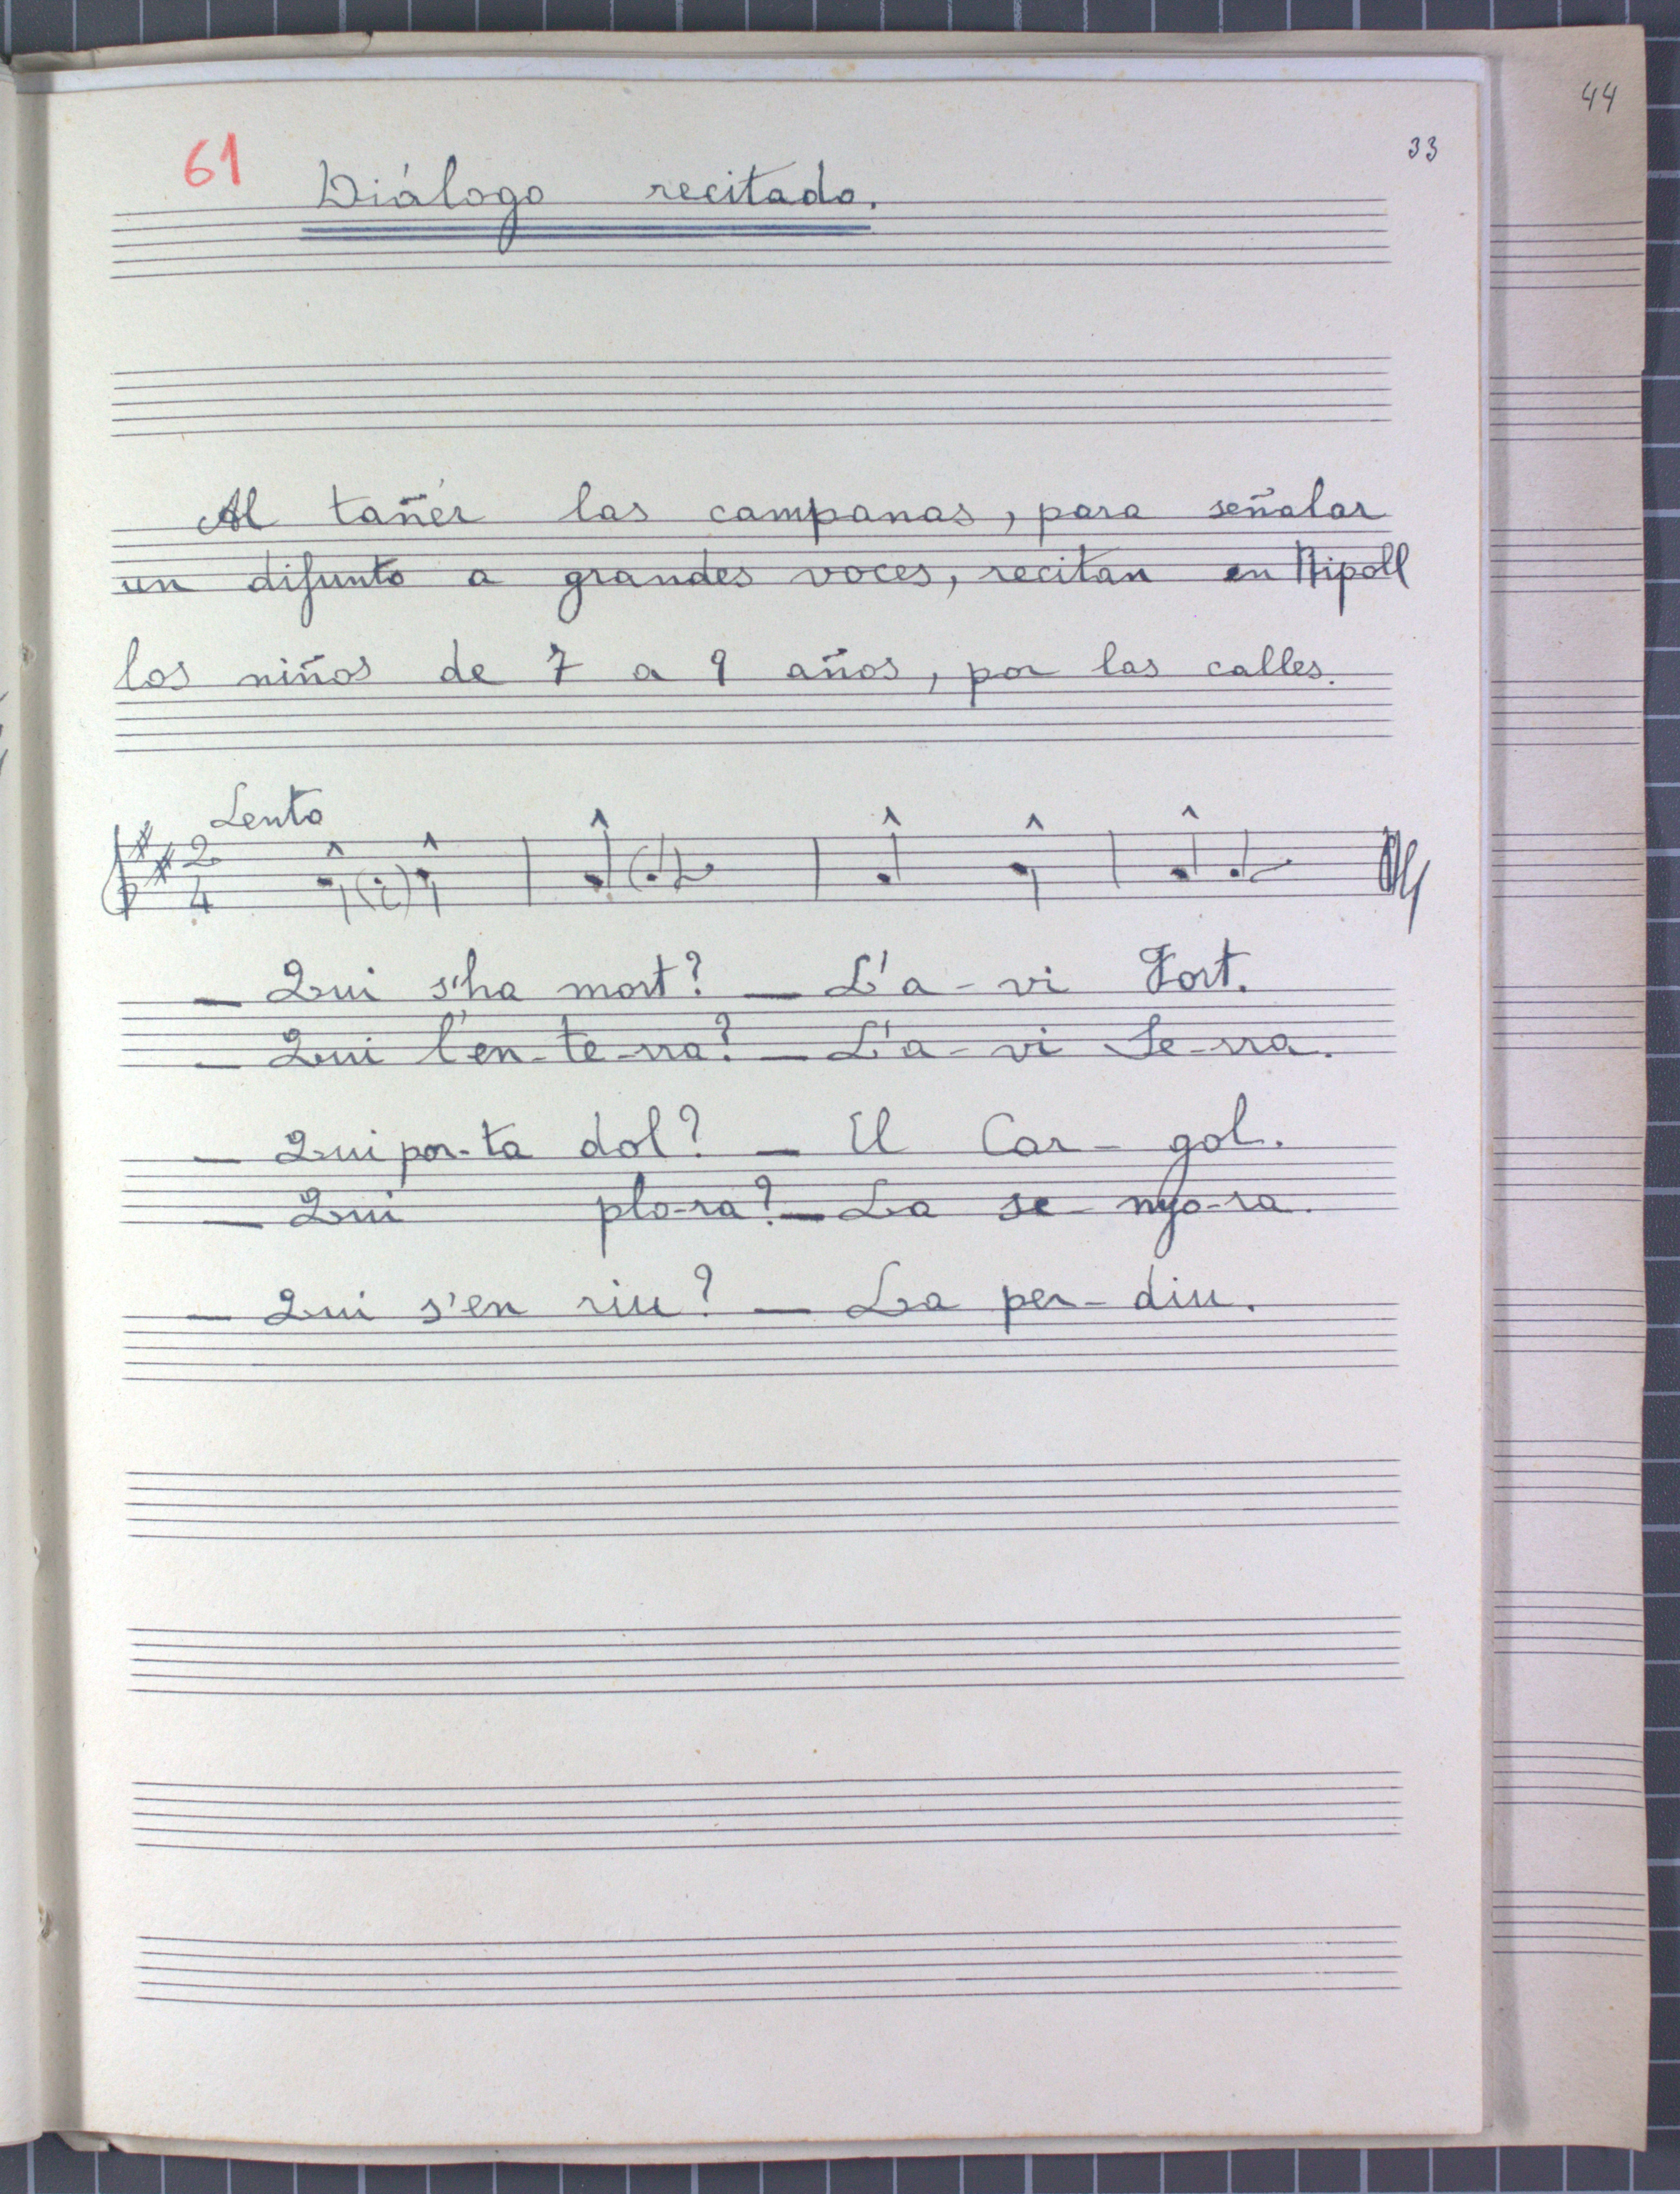 44
33
61 Diálogo recitado.
Al tañer las campanas, para señalar
un difunto a grandes voces, recitan en Ripoll
los niños de 7 a 9 años, por las calles.
Lento
2
4
— Qui s'ha mort? — L'a-vi Fort.
— Qui l'en-te-rra? — L'a-vi Se-rra.
— Qui por-ta dol? — El Car-gol.
— Qui plo-ra? — La se-nyo-ra.
— Qui s'en riu? — La per-diu.